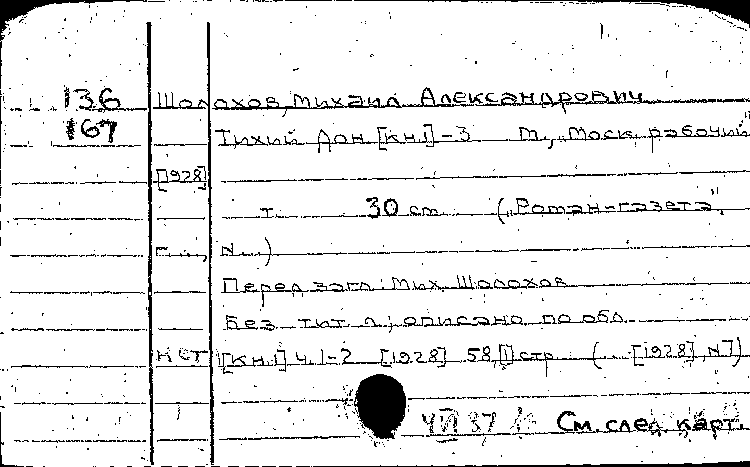 136 Шолохов, Михаил Александрович
167 Тихий Дон [кн.1]-3 М., „Моск. рабочий"
[1928]
т. 30 см. („Роман-газета",
г..., N...)
Перед загл.: Мих. Шолохов
Без тит. л.; описано по обл.
нет [кн.1] ч. 1-2 [1928] 58,[1] стр. (... [1928], N7)
См. след. карт.